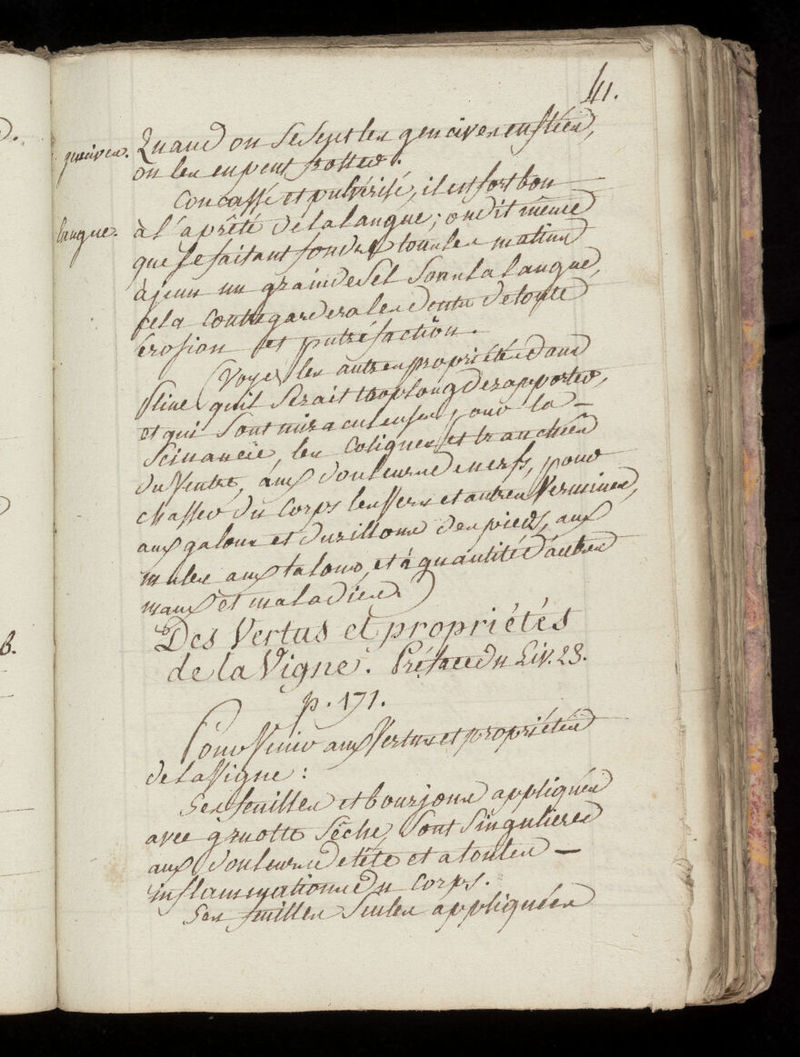 41.
gencives. Quand on se sent les gencives enflées,
on les en peut frotter.
Concassé et pulvérisé, il est fort bon
langue. à l'aprêté de la langue; on dit même
que se faisant fondre tous les matins
à jeun un grain de sel sous la langue,
cela contregardera les dents de toute
érosion et putréfaction.
(Voyez les autres propriétés dans
Pline qu'il serait trop long de rapporter,
et qui sont miraculeuses, pour la
Scinancie, les coliques et tranchées
du Ventre, aux douleurs de nerfs, pour
chasser du Corps les Vers et autres Vermines,
aux galons et durillons des pieds, aux
mules aux talons, et à quantité d'autres
maux et maladies)
Des Vertus et propriétés
de la Vigne. Préface du Liv. 23.
p. 171.
Pour Venir aux Vertus et propriétés
de la Vigne:
Ses feuilles et bourjons appliqués
avec gruotte Sêche, Sont Singulieres
aux douleurs de tête et a toutes
inflammations du Corps.
Ses feuilles Seules appliquées
B.